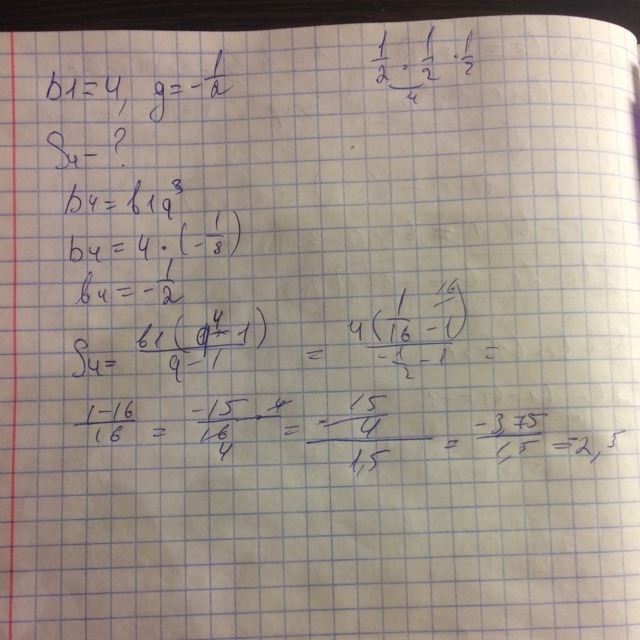 b1=4, g=-1/2
1/2 · 1/2 · 1/2
4
S4-?
b4=b1q³
b4=4·(-1/8)
b4=-1/2
S4= b1(q⁴-1)/q-1 = 4(1/16 -1)/-1/2-1 =
16
1-16/16 = -15·4/16 = -15/4/1,5 = -3,75/1,5 =2,5
4